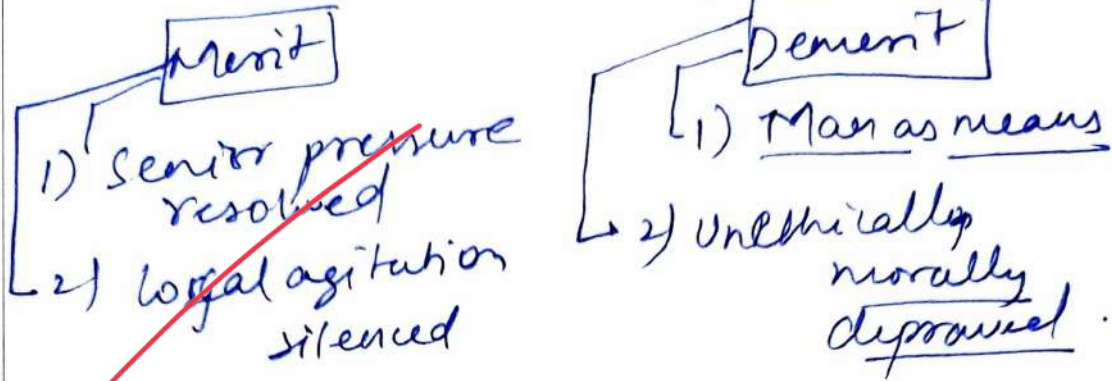 Merit
1) Senior pressure
resolved
2) local agitation
silenced
Demerit
1) Man as means
2) Unethically
morally
depraved.